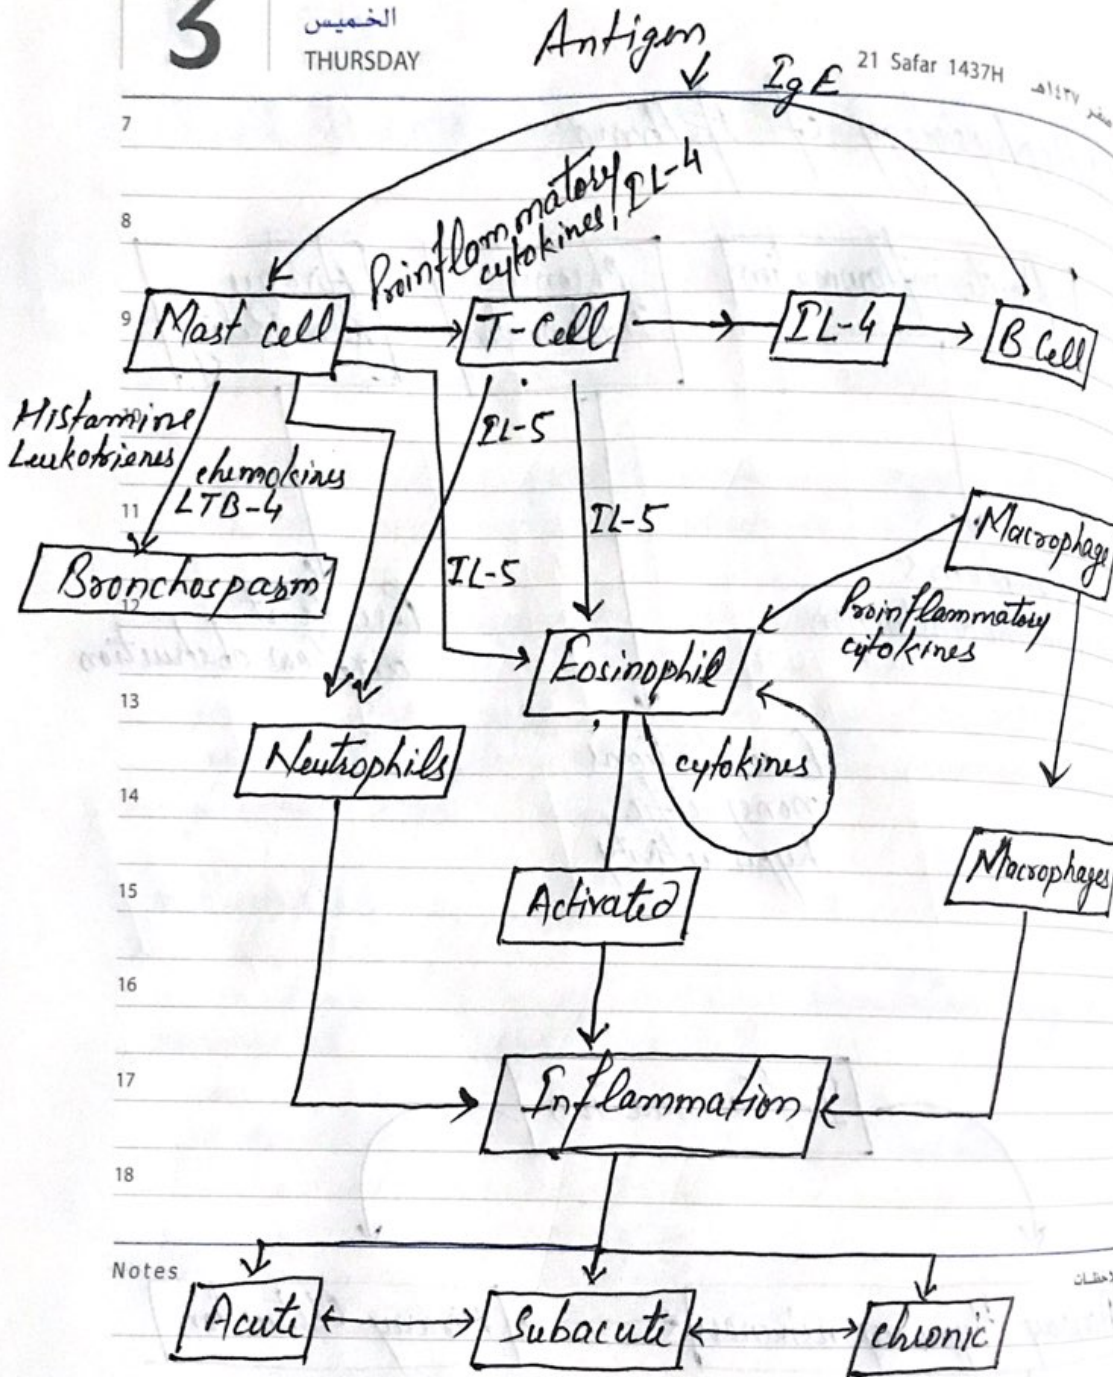 3
الخميس
THURSDAY
Antigen
21 Safar 1437H
IgE
7
8
Proinflammatory
cytokines, IL-4
9
Mast cell
T-Cell
IL-4
B Cell
Histamine
Leukotrienes
IL-5
chemokines
LTB-4
11
IL-5
Macrophage
Bronchospasm
12
IL-5
Proinflammatory
cytokines
Eosinophil
13
Neutrophils
cytokines
14
Macrophages
15
Activated
16
17
Inflammation
18
Notes
Acute
Subacute
chronic